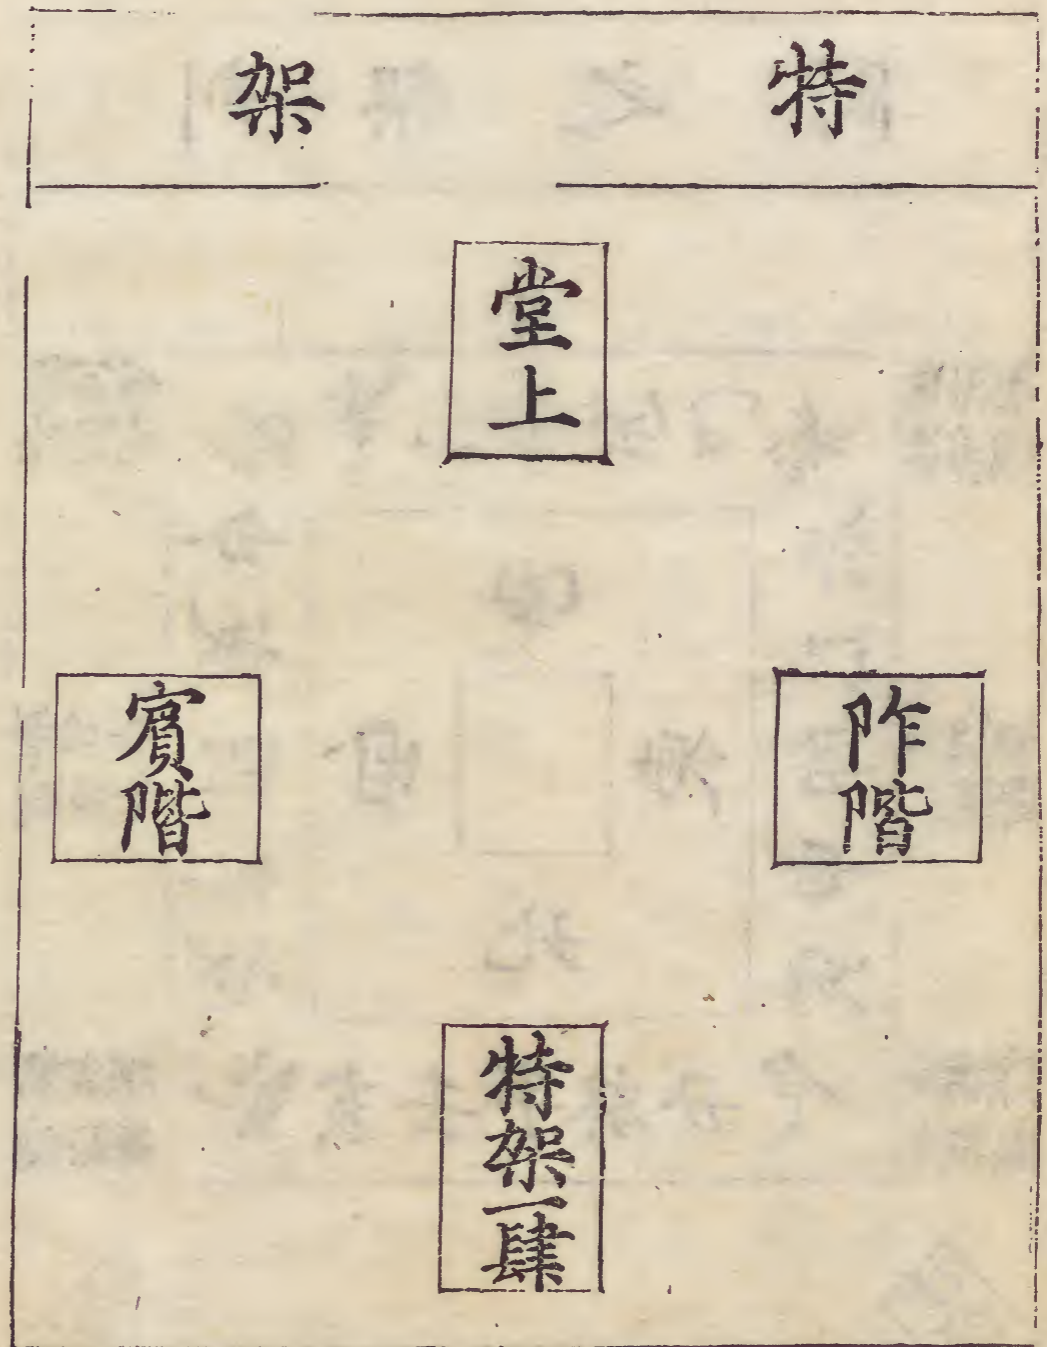 特架
堂上
阼階
賓階
特架一肆